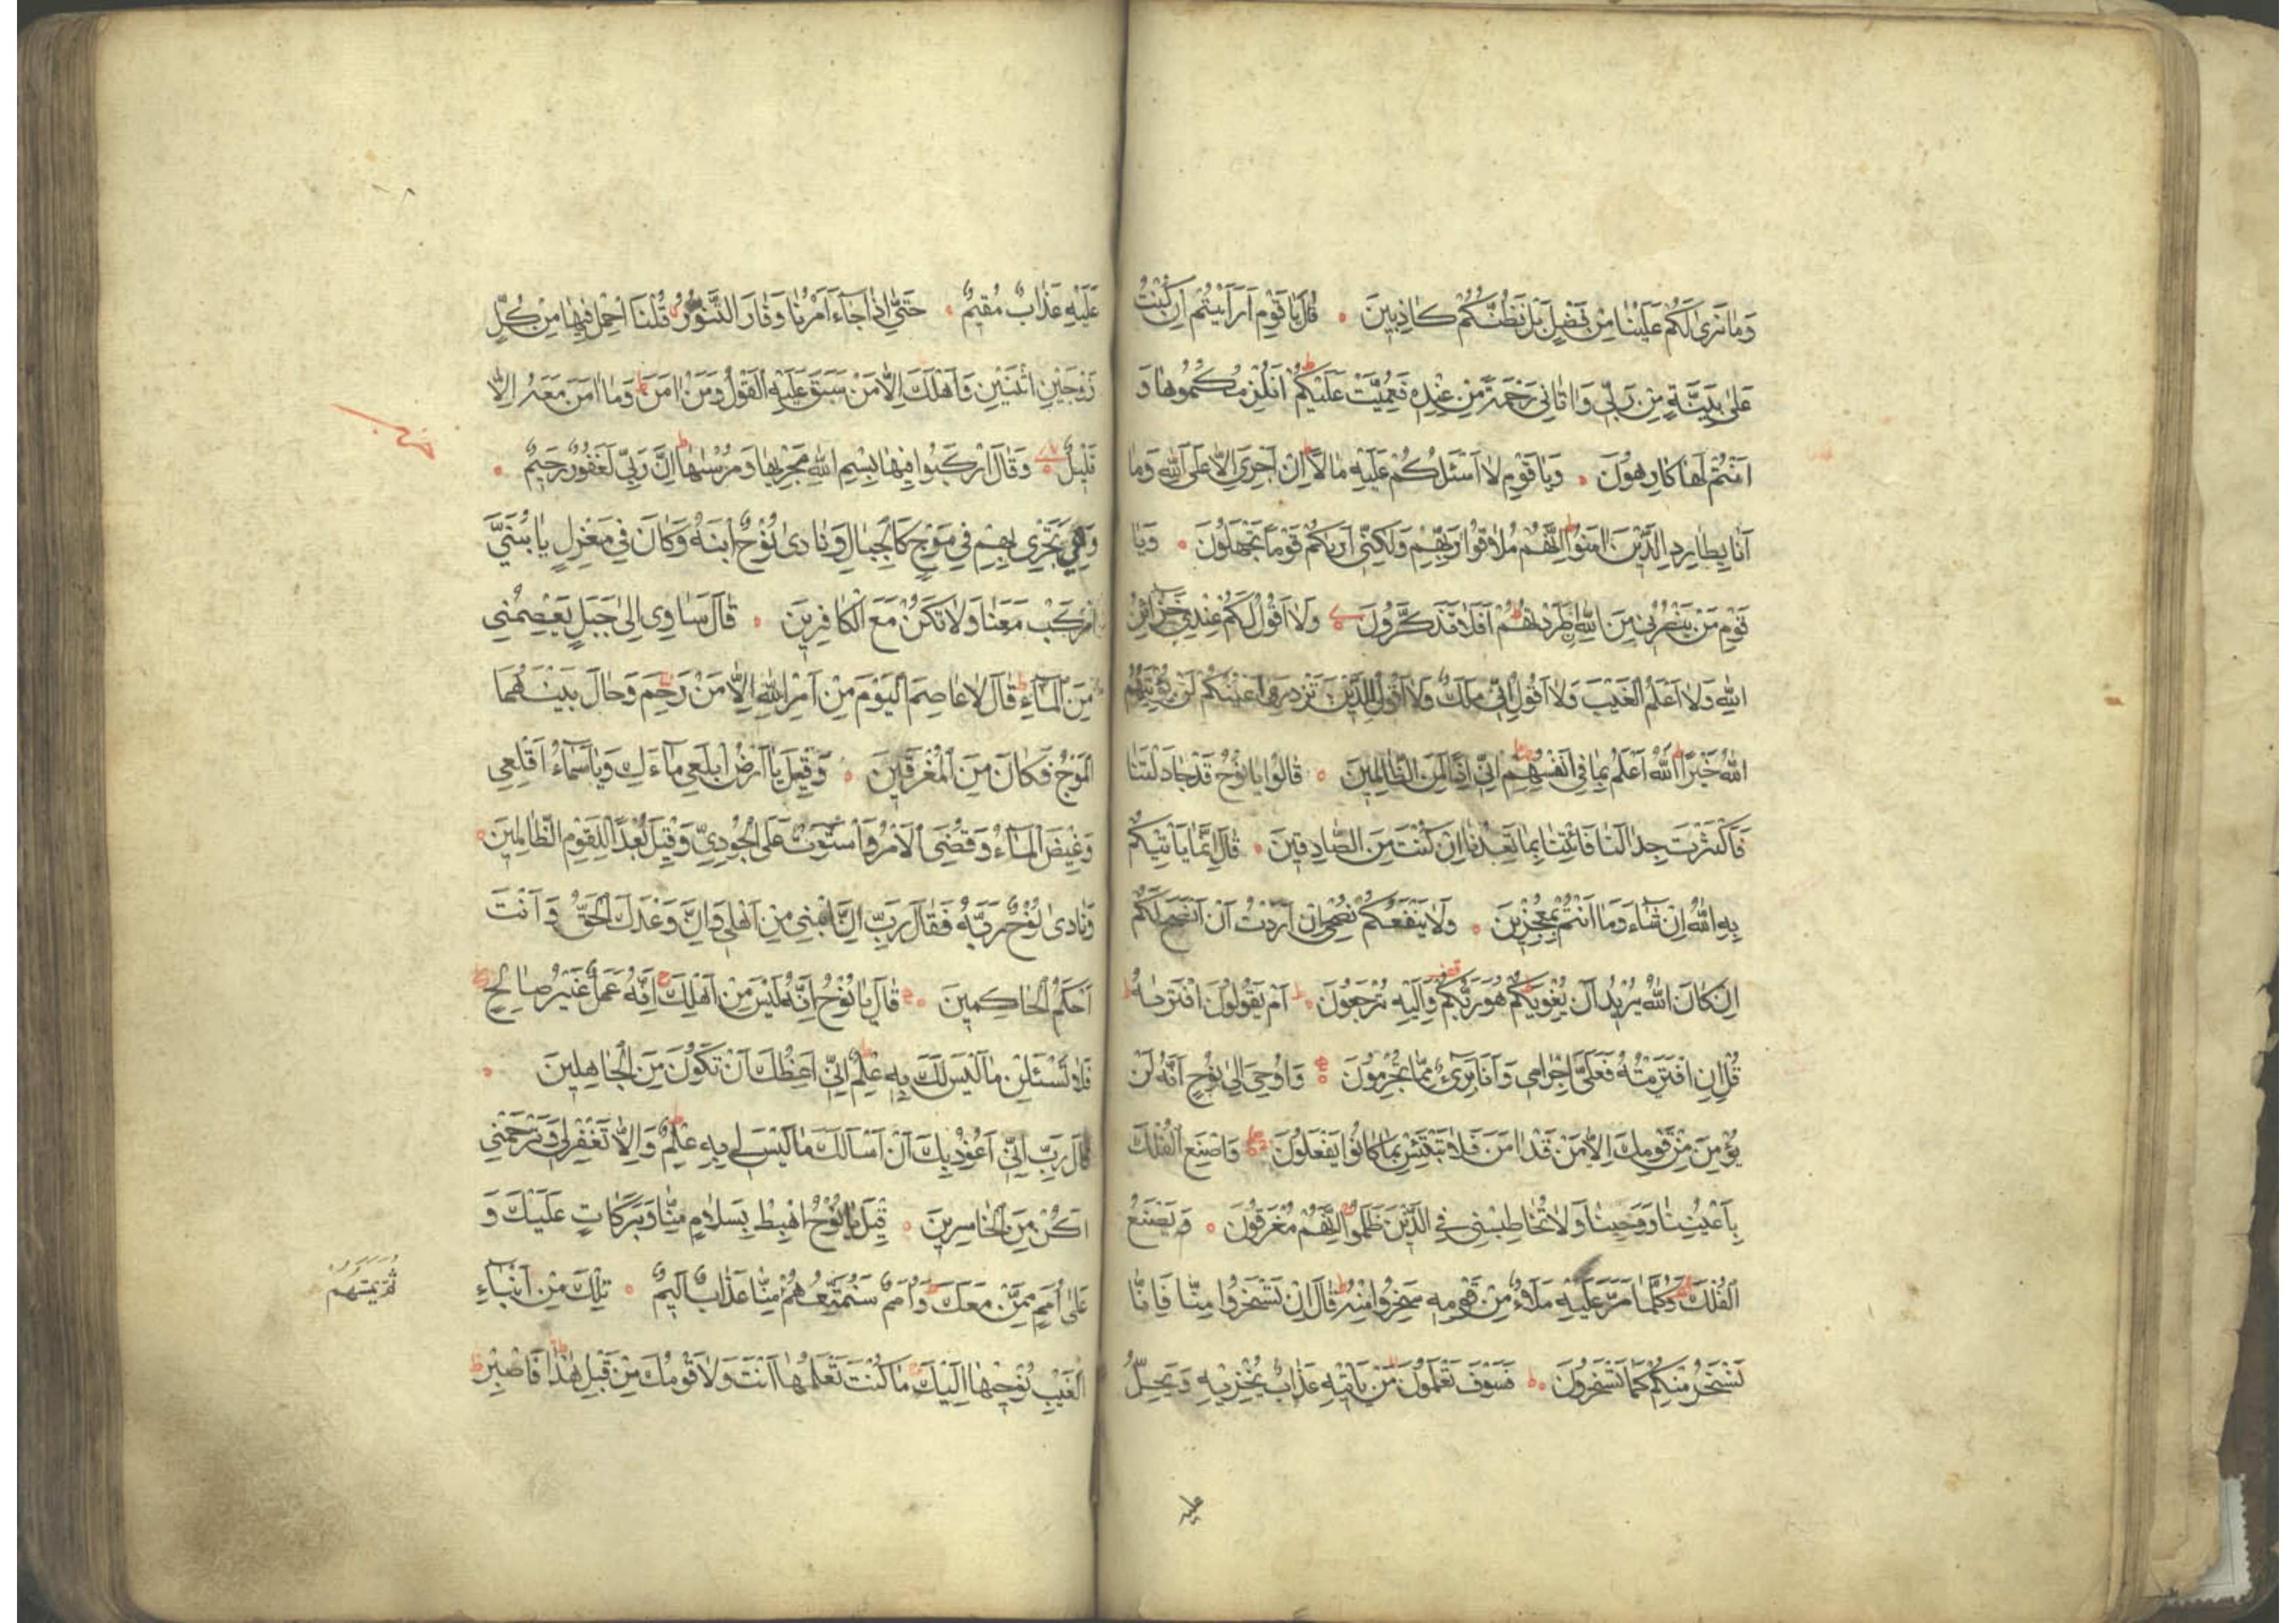 وَمَا نَرٰى لَكُمْ عَلَيْنَا مِنْ فَضْلٍ بَلْ نَظُنُّكُمْ كَاذِبِينَ قَالَ يَا قَوْمِ اَرَاَيْتُمْ اِنْ كُنْتُ
عَلٰى بَيِّنَةٍ مِنْ رَبّٖى وَاٰتَانِى رَحْمَةً مِنْ عِنْدِهٖ فَعُمِّيَتْ عَلَيْكُمْ اَنُلْزِمُكُمُوهَا وَ
اَنْتُمْ لَهَا كَارِهُونَ وَيَا قَوْمِ لَا اَسْئَلُكُمْ عَلَيْهِ مَالًا اِنْ اَجْرِىَ اِلَّا عَلَى اللّٰهِ وَمَا
اَنَا بِطَارِدِ الَّذِينَ اٰمَنُوا اِنَّهُمْ مُلَاقُوا رَبِّهِمْ وَلٰكِنِّى اَرٰيكُمْ قَوْمًا تَجْهَلُونَ وَيَا
قَوْمِ مَنْ يَنْصُرُنِى مِنَ اللّٰهِ اِنْ طَرَدْتُهُمْ اَفَلَا تَذَكَّرُونَ وَلَا اَقُولُ لَكُمْ عِنْدِى خَزَآئِنُ
اللّٰهِ وَلَا اَعْلَمُ الْغَيْبَ وَلَا اَقُولُ اِنِّى مَلَكٌ وَلَا اَقُولُ لِلَّذِينَ تَزْدَرِى اَعْيُنُكُمْ لَنْ يُؤْتِيَهُمُ
اللّٰهُ خَيْرًا اَللّٰهُ اَعْلَمُ بِمَا فِى اَنْفُسِهِمْ اِنِّى اِذًا لَمِنَ الظَّالِمِينَ قَالُوا يَا نُوحُ قَدْ جَادَلْتَنَا
فَاَكْثَرْتَ جِدَالَنَا فَاْتِنَا بِمَا تَعِدُنَا اِنْ كُنْتَ مِنَ الصَّادِقِينَ قَالَ اِنَّمَا يَاْتِيكُمْ
بِهِ اللّٰهُ اِنْ شَآءَ وَمَا اَنْتُمْ بِمُعْجِزِينَ وَلَا يَنْفَعُكُمْ نُصْحِى اِنْ اَرَدْتُ اَنْ اَنْصَحَ لَكُمْ
اِنْ كَانَ اللّٰهُ يُرِيدُ اَنْ يُغْوِيَكُمْ هُوَ رَبُّكُمْ وَاِلَيْهِ تُرْجَعُونَ اَمْ يَقُولُونَ افْتَرٰيهُ
قُلْ اِنِ افْتَرَيْتُهُ فَعَلَىَّ اِجْرَامِى وَاَنَا بَرِىٓءٌ مِمَّا تُجْرِمُونَ وَاُوحِىَ اِلٰى نُوحٍ اَنَّهُ لَنْ
يُؤْمِنَ مِنْ قَوْمِكَ اِلَّا مَنْ قَدْ اٰمَنَ فَلَا تَبْتَئِسْ بِمَا كَانُوا يَفْعَلُونَ وَاصْنَعِ الْفُلْكَ
بِاَعْيُنِنَا وَوَحْيِنَا وَلَا تُخَاطِبْنِى فِى الَّذِينَ ظَلَمُوا اِنَّهُمْ مُغْرَقُونَ وَيَصْنَعُ
الْفُلْكَ وَكُلَّمَا مَرَّ عَلَيْهِ مَلَاٌ مِنْ قَوْمِهٖ سَخِرُوا مِنْهُ قَالَ اِنْ تَسْخَرُوا مِنَّا فَاِنَّا
نَسْخَرُ مِنْكُمْ كَمَا تَسْخَرُونَ فَسَوْفَ تَعْلَمُونَ مَنْ يَاْتِيهِ عَذَابٌ يُخْزِيهِ وَيَحِلُّ
عليه
عَلَيْهِ عَذَابٌ مُقِيمٌ حَتّٰى اِذَا جَآءَ اَمْرُنَا وَفَارَ التَّنُّورُ قُلْنَا احْمِلْ فِيهَا مِنْ كُلٍّ
زَوْجَيْنِ اثْنَيْنِ وَاَهْلَكَ اِلَّا مَنْ سَبَقَ عَلَيْهِ الْقَوْلُ وَمَنْ اٰمَنَ وَمَا اٰمَنَ مَعَهُ اِلَّا
قَلِيلٌ وَقَالَ ارْكَبُوا فِيهَا بِسْمِ اللّٰهِ مَجْرٰيهَا وَمُرْسٰيهَا اِنَّ رَبِّى لَغَفُورٌ رَحِيمٌ
وَهِىَ تَجْرِى بِهِمْ فِى مَوْجٍ كَالْجِبَالِ وَنَادٰى نُوحٌ ابْنَهُ وَكَانَ فِى مَعْزِلٍ يَا بُنَىَّ
ارْكَبْ مَعَنَا وَلَا تَكُنْ مَعَ الْكَافِرِينَ قَالَ سَاٰوِى اِلٰى جَبَلٍ يَعْصِمُنِى
مِنَ الْمَآءِ قَالَ لَا عَاصِمَ الْيَوْمَ مِنْ اَمْرِ اللّٰهِ اِلَّا مَنْ رَحِمَ وَحَالَ بَيْنَهُمَا
الْمَوْجُ فَكَانَ مِنَ الْمُغْرَقِينَ وَقِيلَ يَا اَرْضُ ابْلَعِى مَآءَكِ وَيَا سَمَآءُ اَقْلِعِى
وَغِيضَ الْمَآءُ وَقُضِىَ الْاَمْرُ وَاسْتَوَتْ عَلَى الْجُودِىِّ وَقِيلَ بُعْدًا لِلْقَوْمِ الظَّالِمِينَ
وَنَادٰى نُوحٌ رَبَّهُ فَقَالَ رَبِّ اِنَّ ابْنِى مِنْ اَهْلِى وَاِنَّ وَعْدَكَ الْحَقُّ وَاَنْتَ
اَحْكَمُ الْحَاكِمِينَ قَالَ يَا نُوحُ اِنَّهُ لَيْسَ مِنْ اَهْلِكَ اِنَّهُ عَمَلٌ غَيْرُ صَالِحٍ
فَلَا تَسْئَلْنِ مَا لَيْسَ لَكَ بِهٖ عِلْمٌ اِنِّى اَعِظُكَ اَنْ تَكُونَ مِنَ الْجَاهِلِينَ
قَالَ رَبِّ اِنِّى اَعُوذُ بِكَ اَنْ اَسْاَلَكَ مَا لَيْسَ لِى بِهٖ عِلْمٌ وَاِلَّا تَغْفِرْ لِى وَتَرْحَمْنِى
اَكُنْ مِنَ الْخَاسِرِينَ قِيلَ يَا نُوحُ اهْبِطْ بِسَلَامٍ مِنَّا وَبَرَكَاتٍ عَلَيْكَ وَ
عَلٰى اُمَمٍ مِمَّنْ مَعَكَ وَاُمَمٌ سَنُمَتِّعُهُمْ مِنَّا عَذَابٌ اَلِيمٌ تِلْكَ مِنْ اَنْبَآءِ
ثُمَّ يَمَسُّهُمْ
الْغَيْبِ نُوحِيهَا اِلَيْكَ مَا كُنْتَ تَعْلَمُهَا اَنْتَ وَلَا قَوْمُكَ مِنْ قَبْلِ هٰذَا فَاصْبِرْ